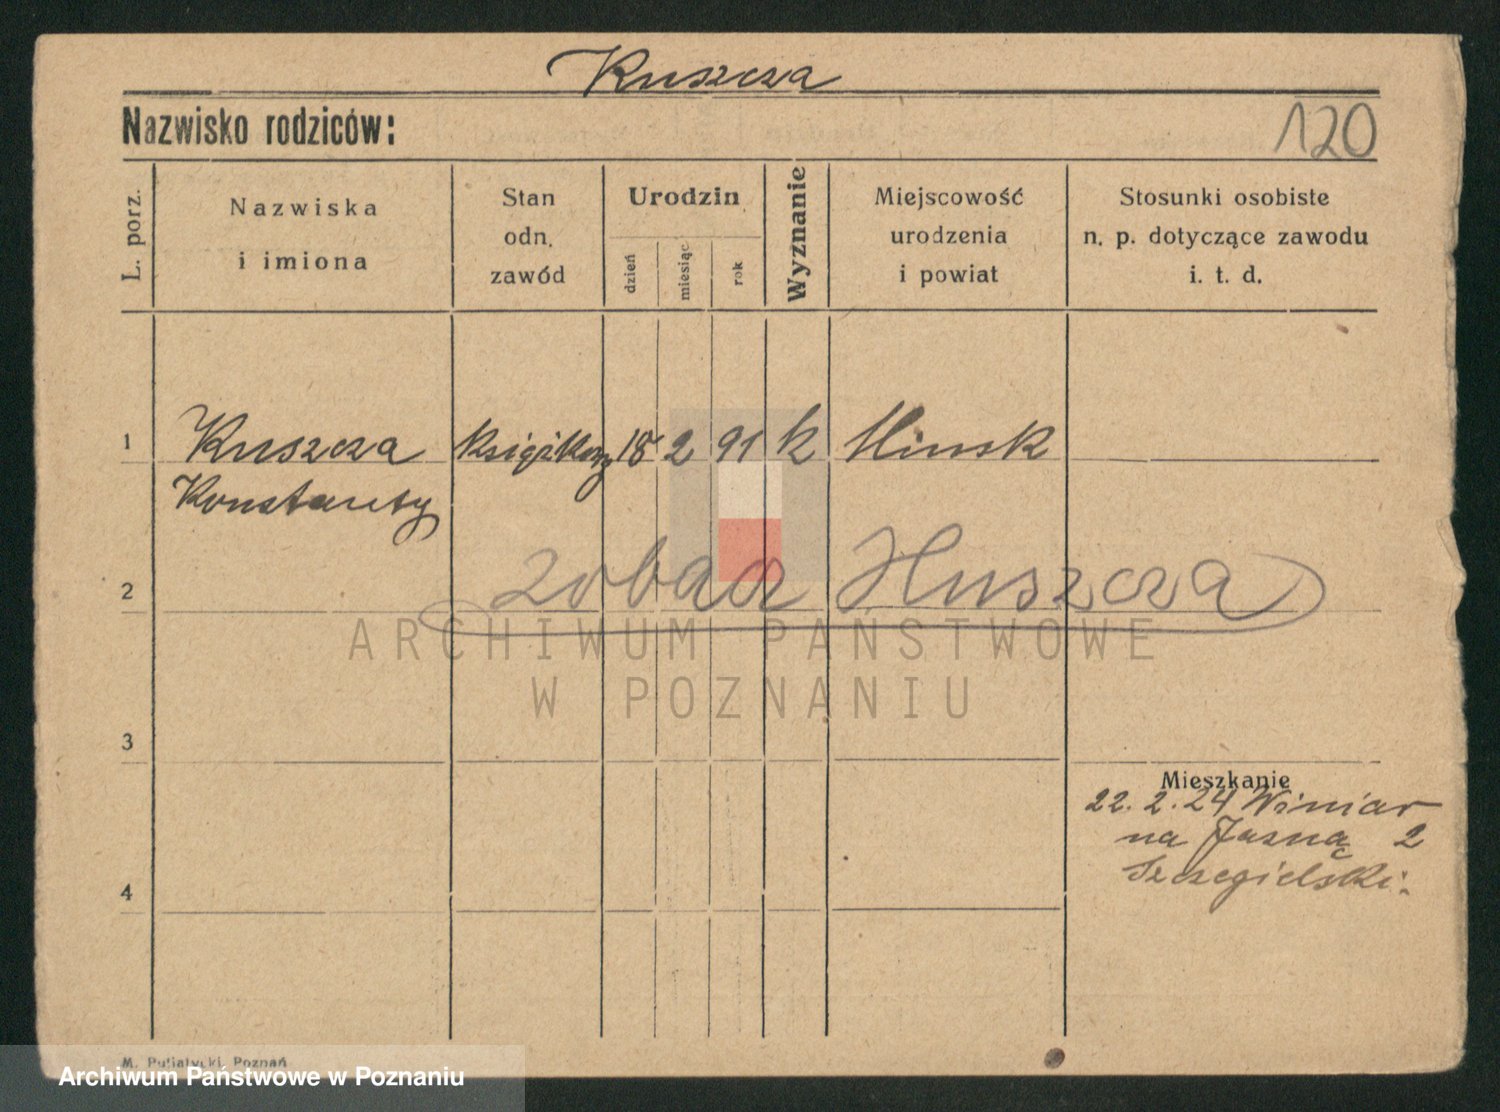 Kuszcza
Nazwisko rodziców:
120
L. porz.
Nazwiska
i imiona
Stan
odn.
zawód
Urodzin
dzień
miesiąc
rok
Wyznanie
Miejscowość
urodzenia
i powiat
Stosunki osobiste
n. p. dotyczące zawodu
i. t. d.
1 Kuszcza 18 2 91 k Minsk
Konstanty
2
zobacz Huszcza
ARCHIWUM PAŃSTWOWE
W POZNANIU
3
Mieszkanie
22. 2. 24 Winiar
na Jasna 2
4
M. Putiatycki, Poznań
Archiwum Państwowe w Poznaniu